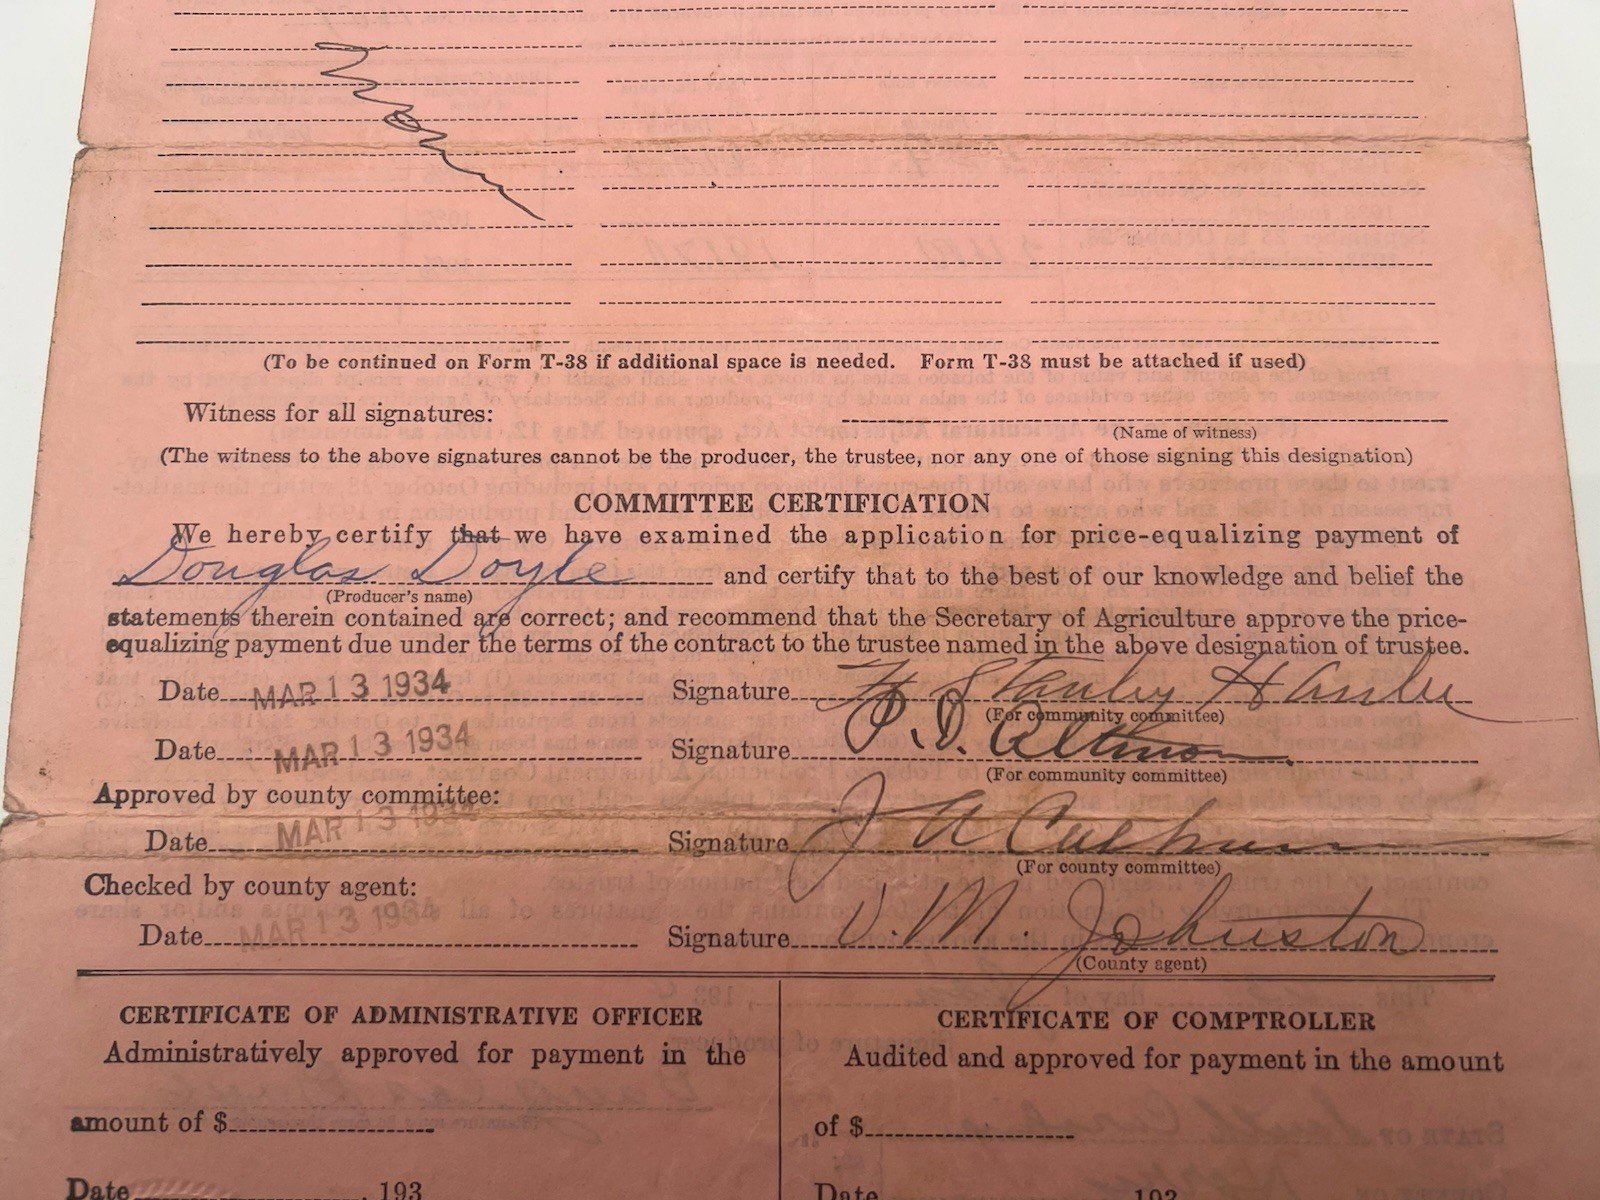 none
(To be continued on Form T-38 if additional space is needed. Form T-38 must be attached if used)
Witness for all signatures:
(Name of witness)
(The witness to the above signatures cannot be the producer, the trustee, nor any one of those signing this designation)
COMMITTEE CERTIFICATION
We hereby certify that we have examined the application for price-equalizing payment of
Douglas Doyle and certify that to the best of our knowledge and belief the
(Producer's name)
statements therein contained are correct; and recommend that the Secretary of Agriculture approve the price-
equalizing payment due under the terms of the contract to the trustee named in the above designation of trustee.
Date MAR 13 1934 Signature Stanley
(For community committee)
Date MAR 13 1934 Signature P. D. Altman
(For community committee)
Approved by county committee:
Date MAR 13 1934 Signature J A Calhoun
(For county committee)
Checked by county agent:
Date MAR 13 1934 Signature V. M. Johnston
(County agent)
CERTIFICATE OF ADMINISTRATIVE OFFICER
Administratively approved for payment in the
amount of $
Date , 193
CERTIFICATE OF COMPTROLLER
Audited and approved for payment in the amount
of $
Date 193